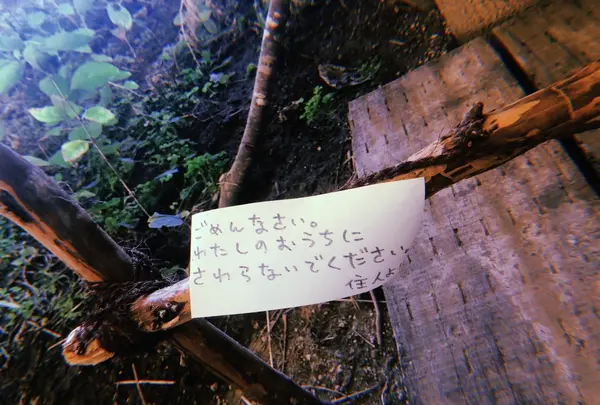 ごめんなさい。
わたしのおうちに
さわらないでください
住人よ